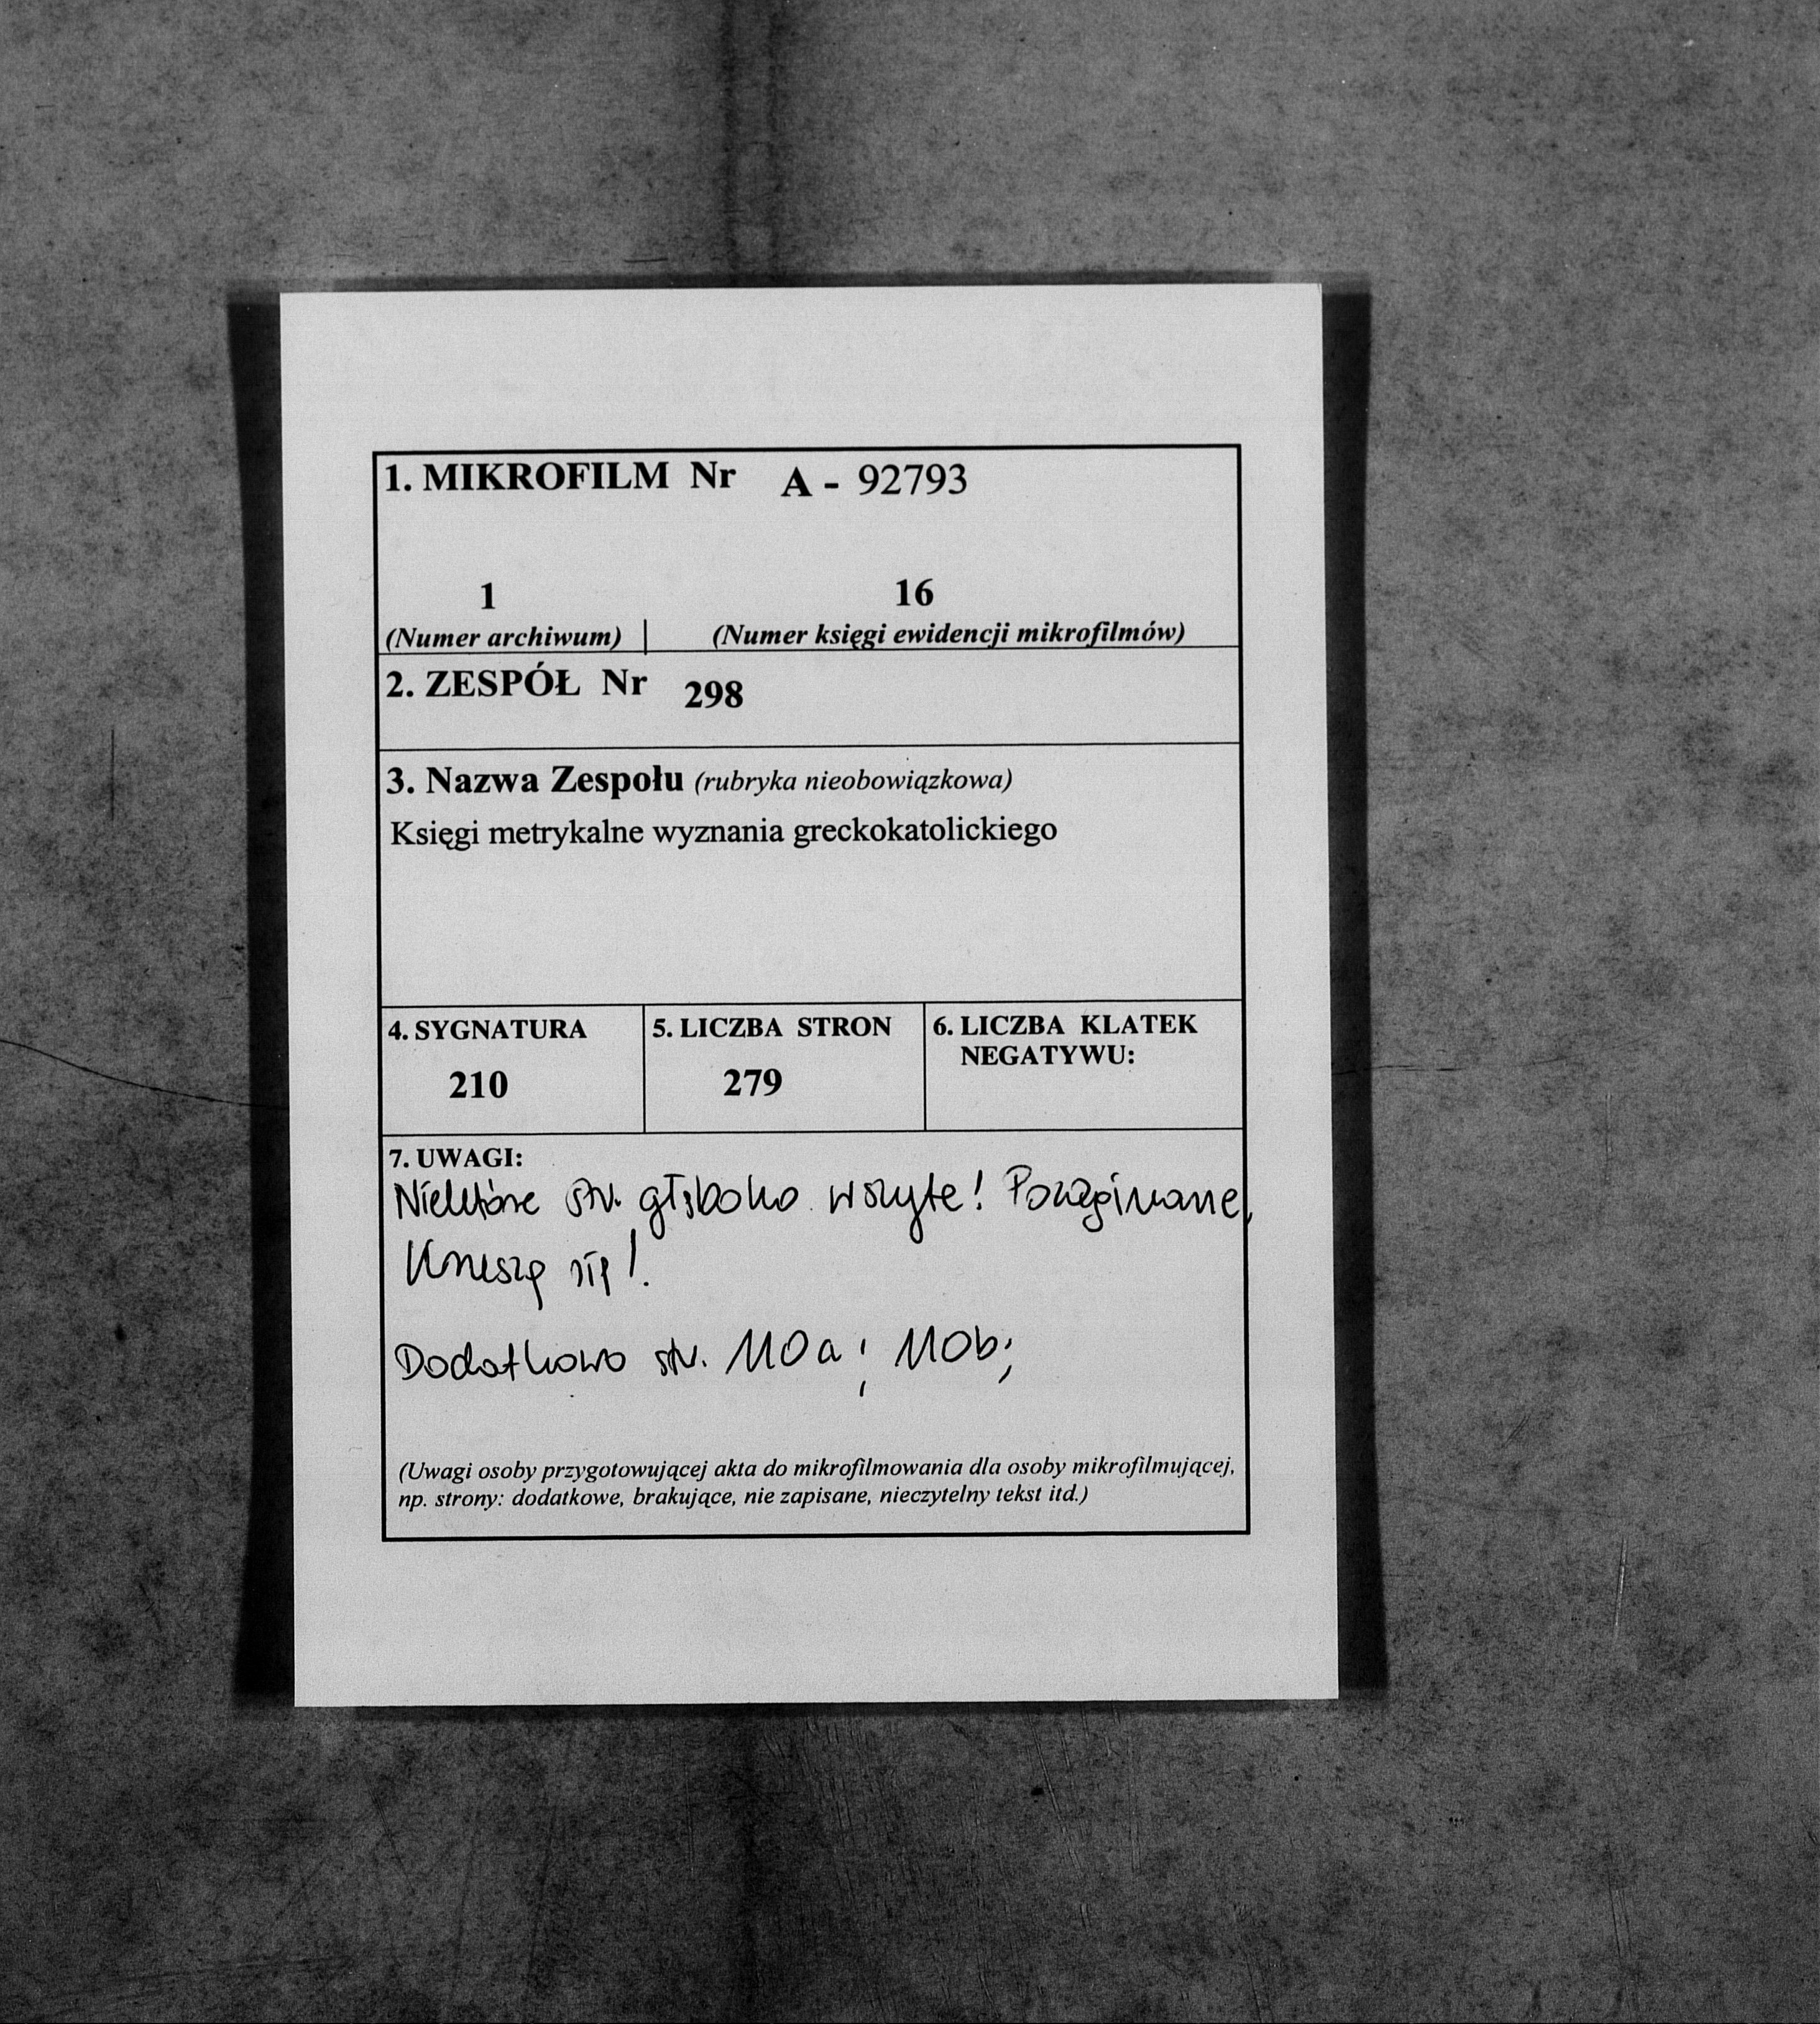 1. MIKROFILM Nr A - 92793
1 16
(Numer archiwum) (Numer księgi ewidencji mikrofilmów)
2. ZESPÓŁ Nr 298
3. Nazwa Zespołu (rubryka nieobowiązkowa)
Księgi metrykalne wyznania greckokatolickiego
4. SYGNATURA 5. LICZBA STRON 6. LICZBA KLATEK
NEGATYWU:
210 279
7. UWAGI:
Niektóre str. głęboko wszyte! Pozaginane,
Kruszą się!
Dodatkowo str. 110a; 110b;
(Uwagi osoby przygotowującej akta do mikrofilmowania dla osoby mikrofilmującej,
np. strony: dodatkowe, brakujące, nie zapisane, nieczytelny tekst itd.)